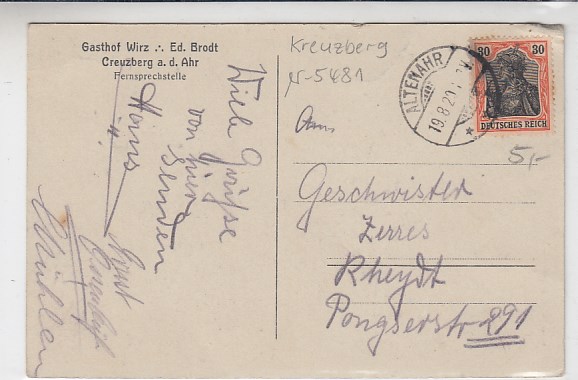 Gasthof Wirz ∴ Ed. Brodt
Creuzberg a. d. Ahr
Fernsprechstelle
Kreuzberg
N-5481
ALTENAHR
19.8.20
30 30
DEUTSCHES REICH
5,-
Viele Grüsse
von hier
senden
Hans
u.
Ernst
An
Geschwister
Zerres
Rheydt
Pongserstr 291